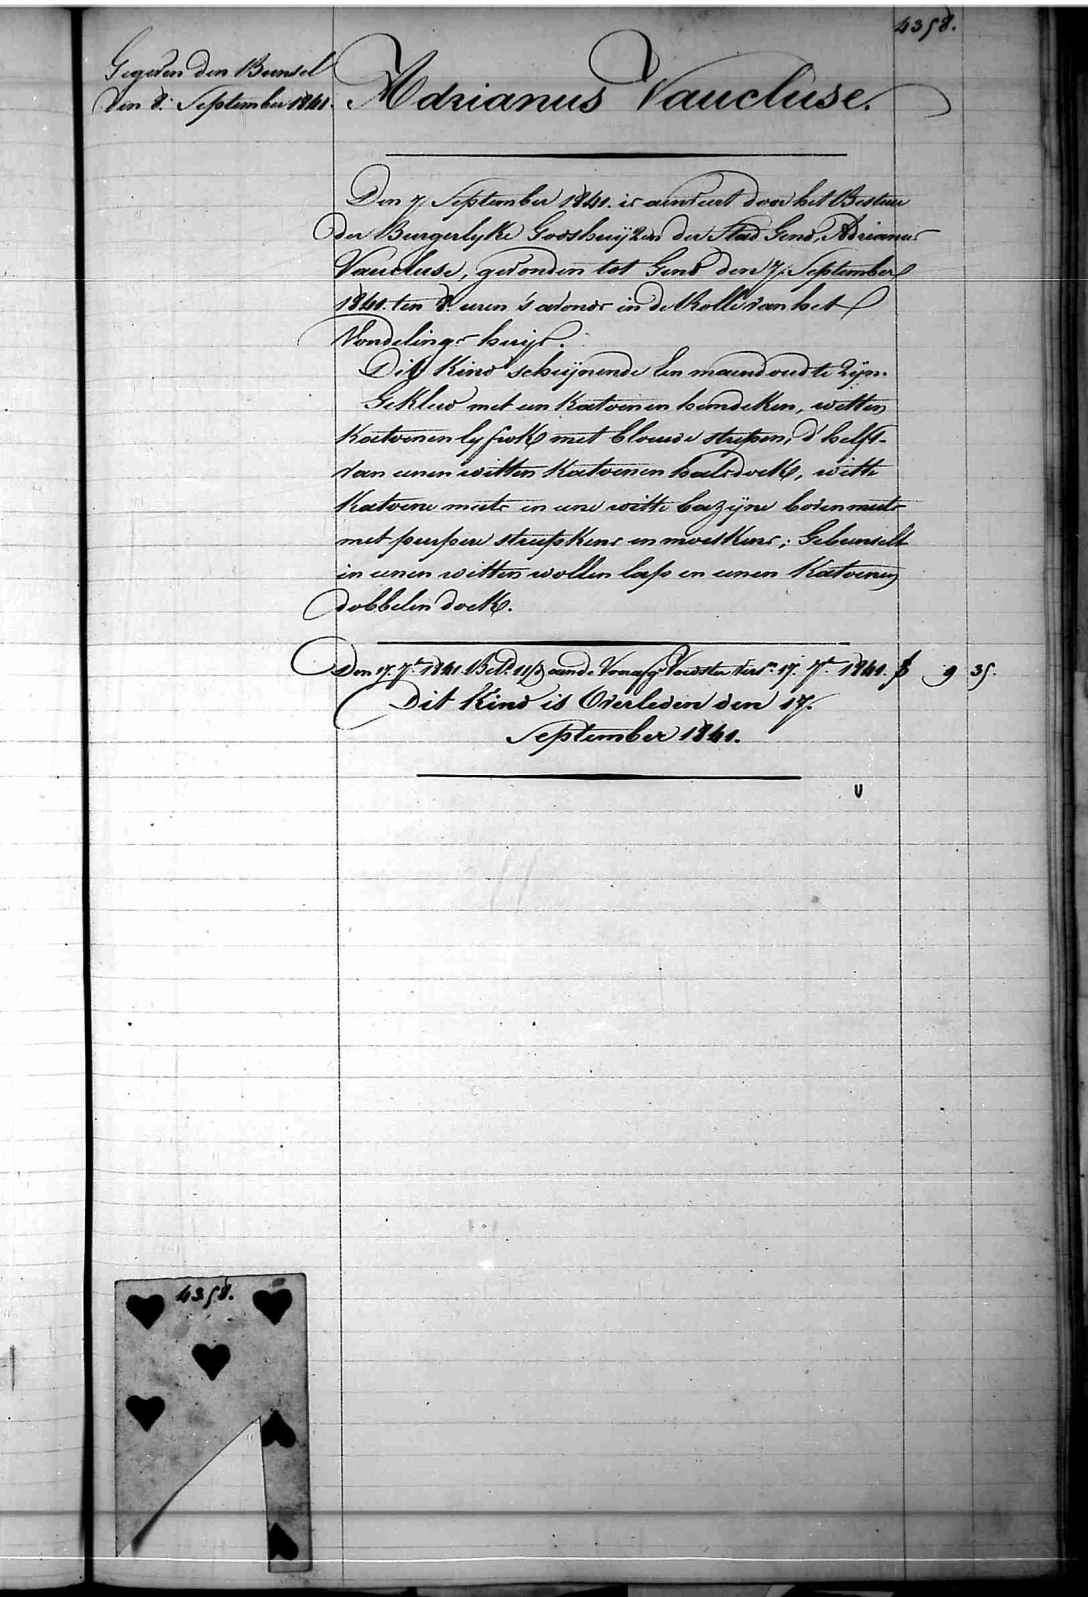 4358.
Gegeven den Bunsel
den 8. September 1841.
Adrianus Vaucluse.
Den 7. September 1841. is aenveert door het Bestuer
der Burgerlyke Godshuijzen der Stad Gend, Adrianus
Vaucluse, gevonden tot Gend den 7. September
1841. ten 8 uren 's avonds in de Rolle van het
Vondelings huijs.
Dit Kind schijnende Een maend oud te Zijn.
Gekleed met een Katoenen hemdeken, witten
Katoenen lyfrok met blouwe strepen, d'helft
van eenen witten Katoenen halsdoek, witte
Katoene muts en eene witte bazijne bovenmuts
met purpere streepkens en moeskens; Gebunselt
in eenen witten wollen lap en eenen Katoenen
dobbelen doek.
Den 17. 7.r 1841 Bet. aan de Voedster 17. 7.r 1841. f 9 35.
Dit Kind is Overleden den 17.
September 1841.
4358.